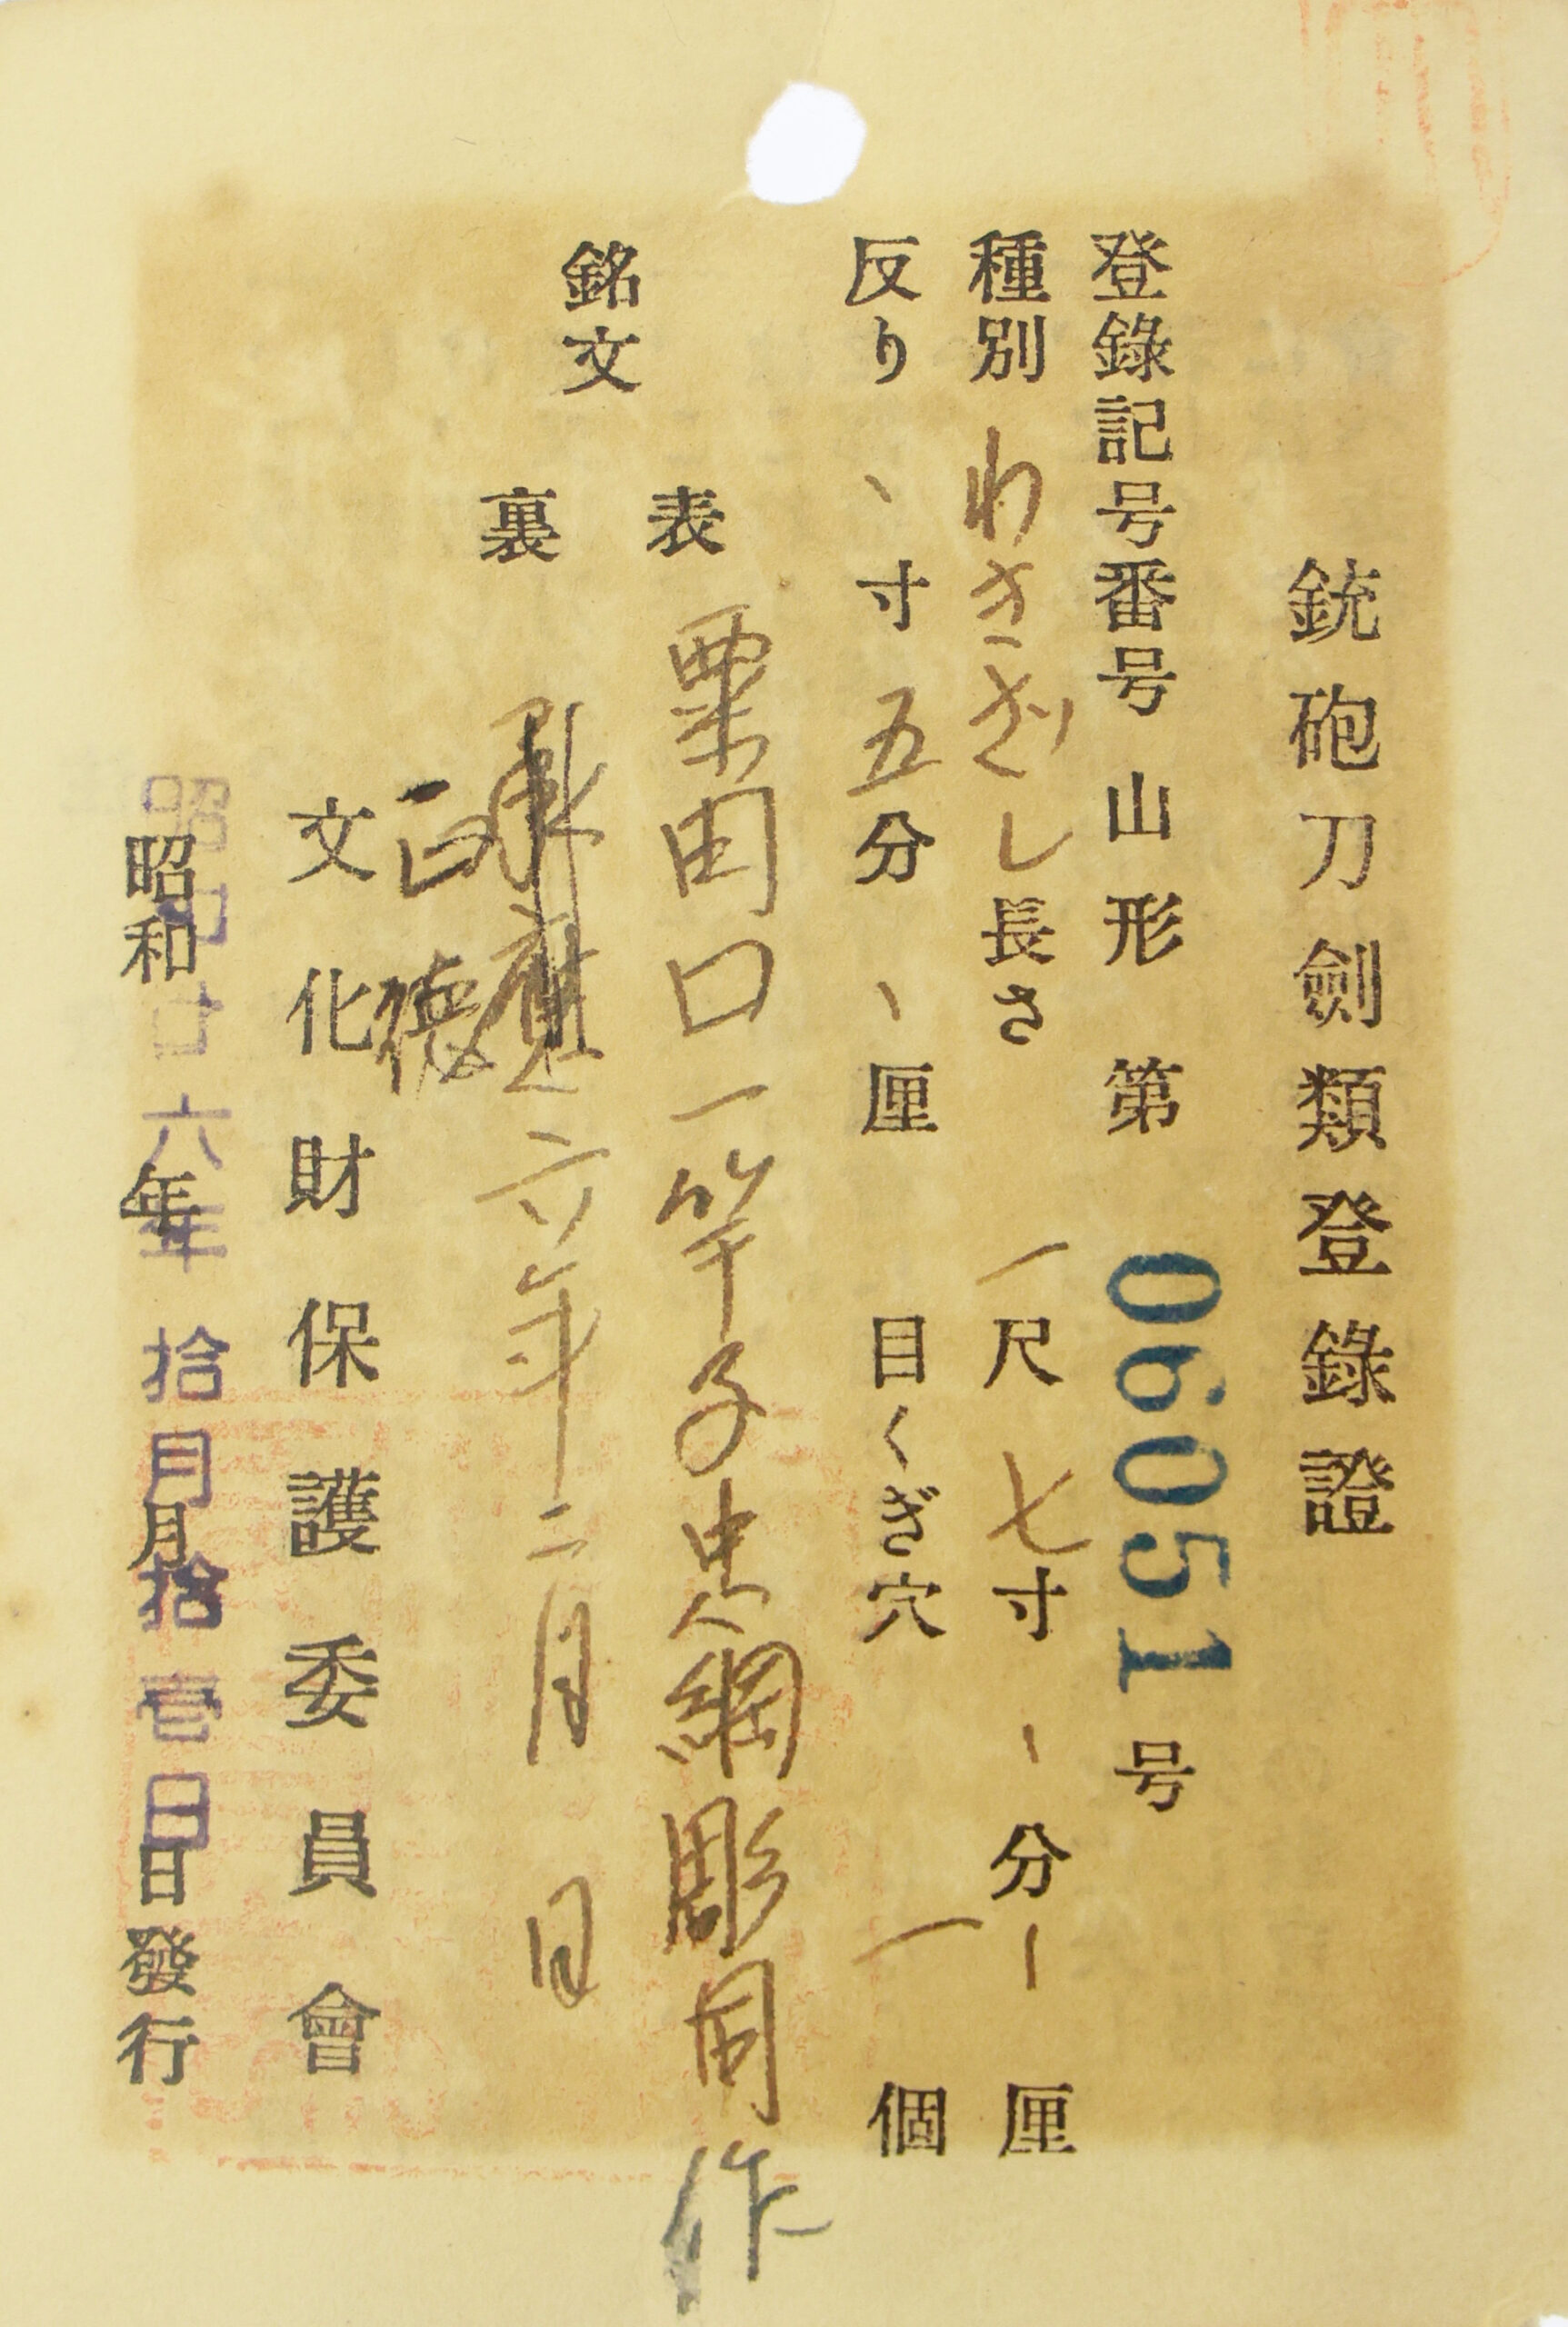 銃砲刀劍類登錄證
登錄記号番号 山形 第 06051 号
種別 わきざし 長さ 一尺 七寸 、分 ー厘
反り 、寸 五分 、厘 目くぎ穴 一個
銘文
表 粟田口一竿子忠綱彫同作
裏 六年二月 日
正徳
文化財保護委員會
昭和廿六年拾月拾壱日
昭和 年 月 日發行